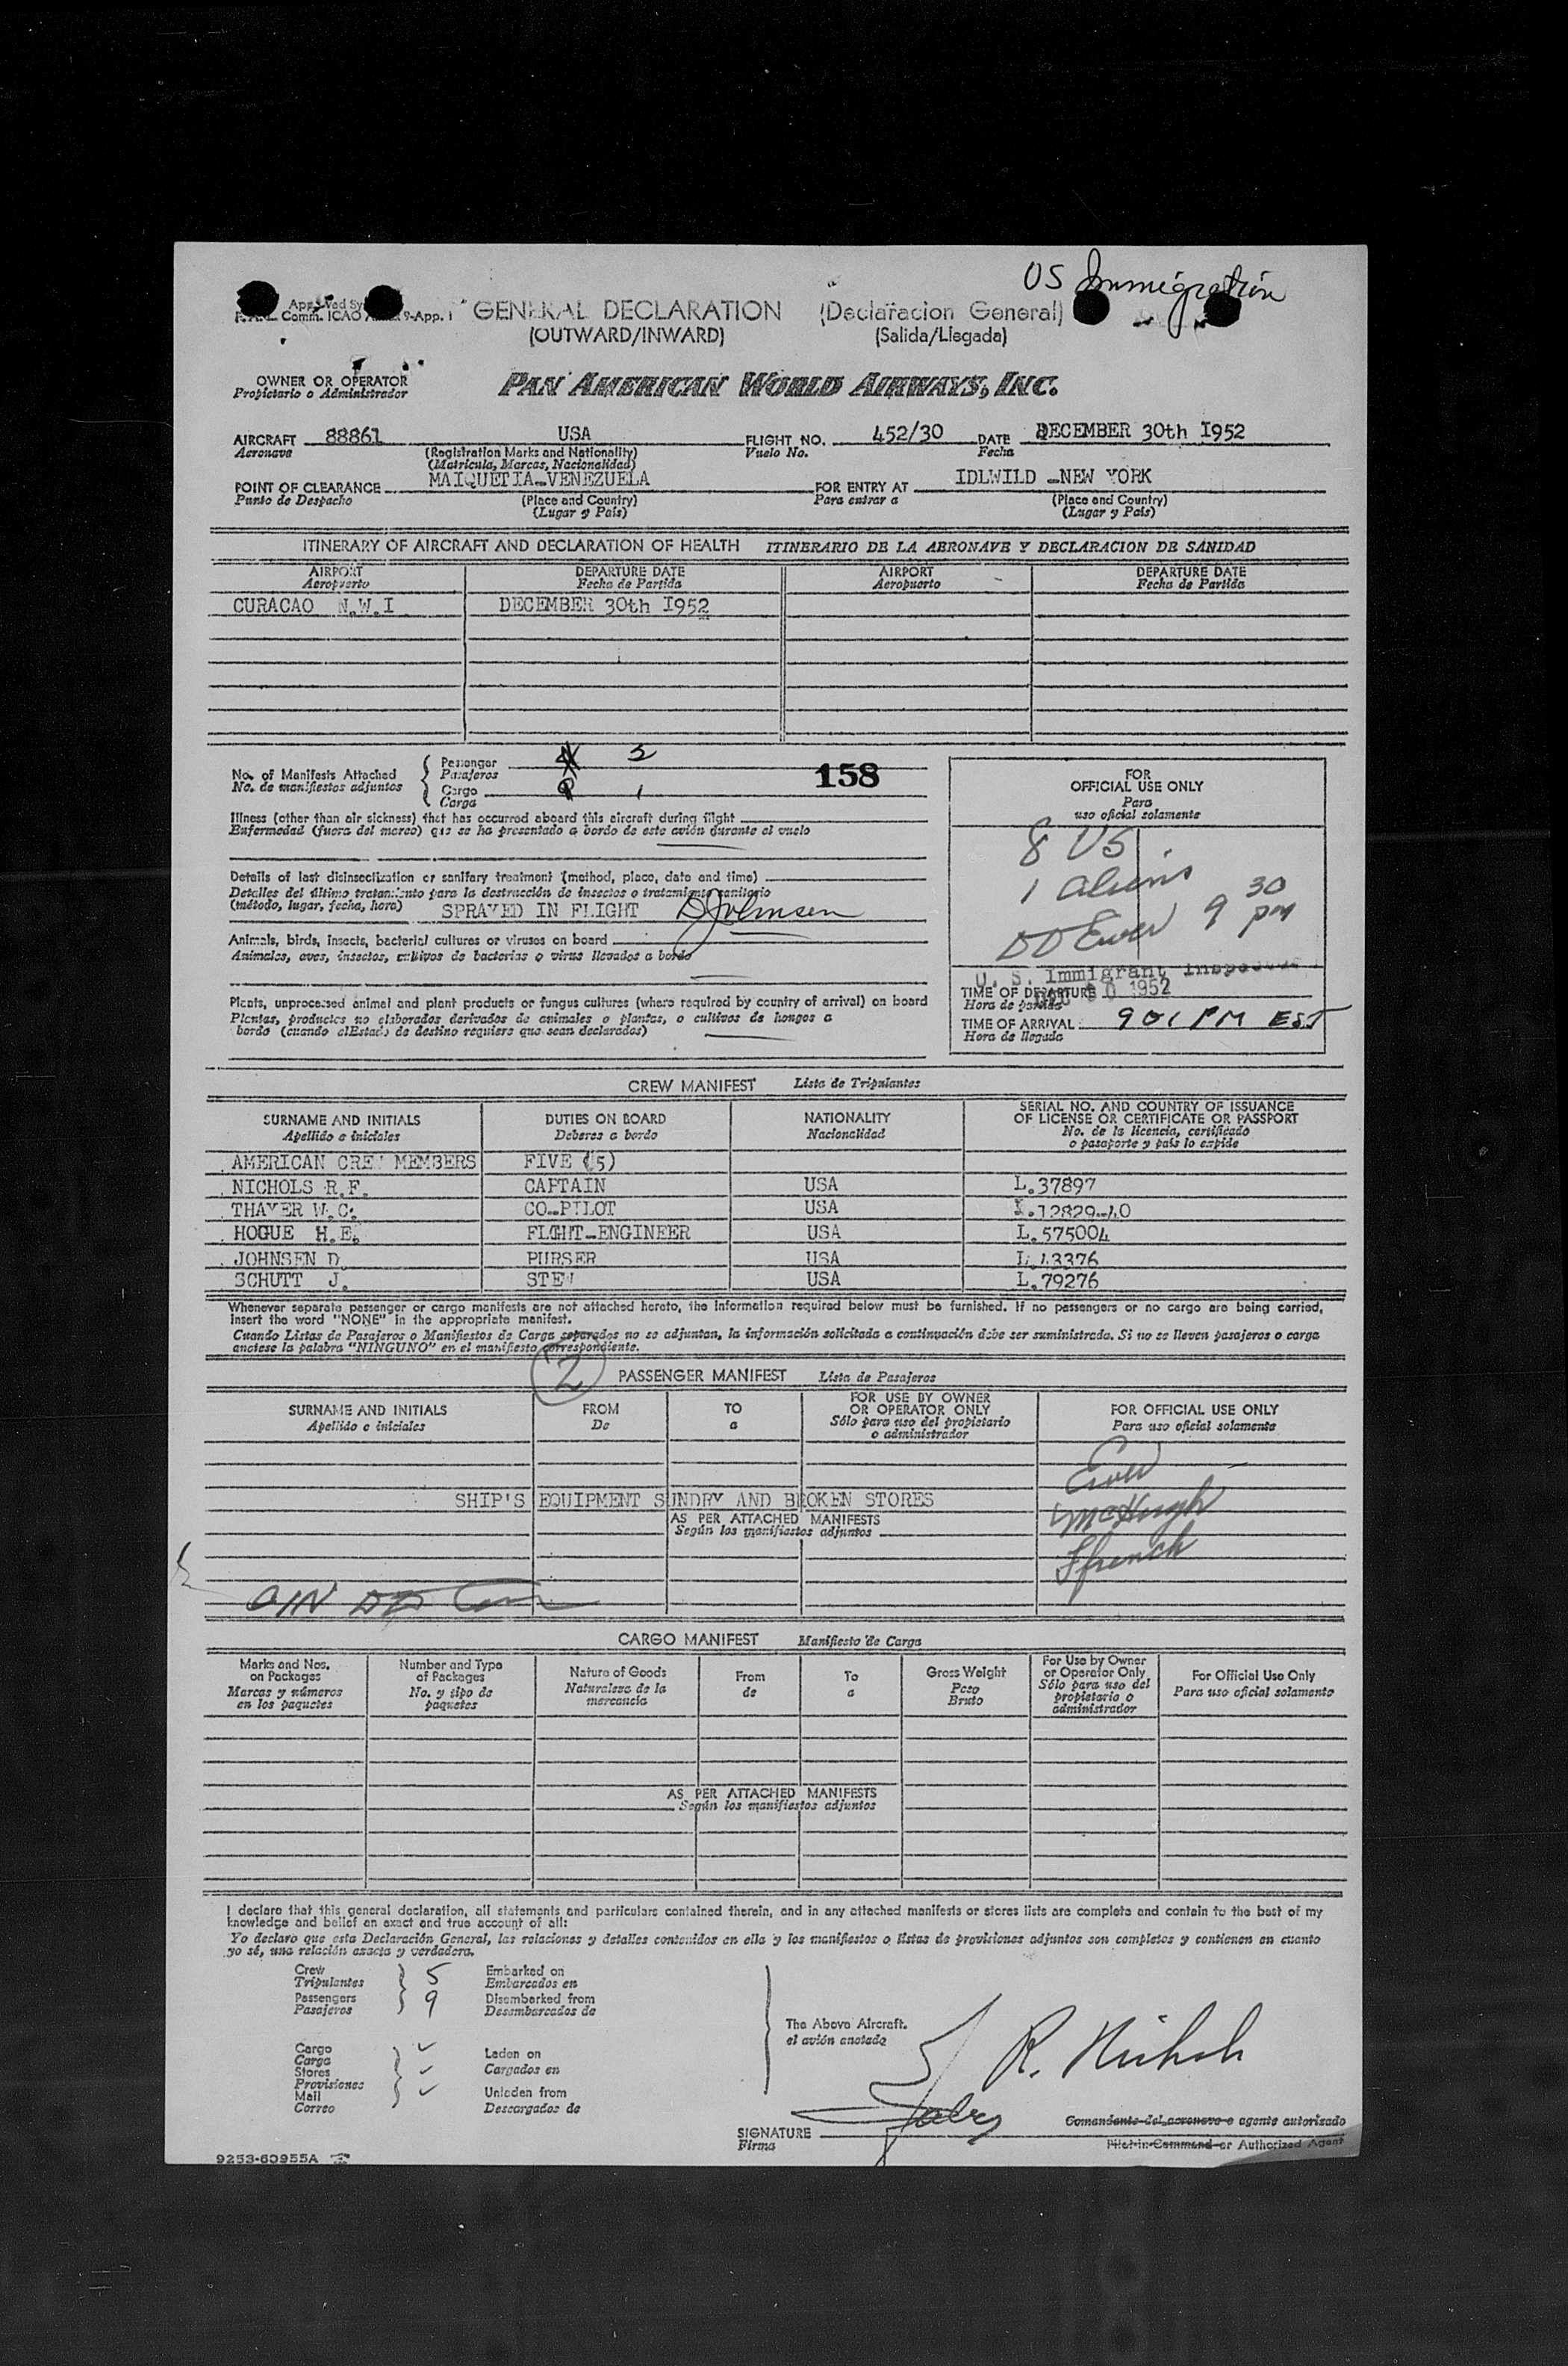 US Immigration
GENERAL DECLARATION (Declaración General)
Comm. ICAO 9-App. 1
(OUTWARD/INWARD) (Salida/Llegada)
OWNER OR OPERATOR
Propietario o Administrador
PAN AMERICAN WORLD AIRWAYS, INC.
AIRCRAFT 88861 USA FLIGHT NO. 452/30 DATE DECEMBER 30th I952
Aeronave (Registration Marks and Nationality) Vuelo No. Fecha
(Matrícula, Marcas, Nacionalidad)
POINT OF CLEARANCE MAIQUETIA-VENEZUELA FOR ENTRY AT IDLWILD -NEW YORK
Punto de Despacho (Place and Country) Para entrar a (Place and Country)
(Lugar y País) (Lugar y País)
ITINERARY OF AIRCRAFT AND DECLARATION OF HEALTH ITINERARIO DE LA AERONAVE Y DECLARACION DE SANIDAD
AIRPORT DEPARTURE DATE AIRPORT DEPARTURE DATE
Aeropuerto Fecha de Partida Aeropuerto Fecha de Partida
CURACAO N.W.I DECEMBER 30th I952
No. of Manifests Attached
No. de manifiestos adjuntos
Passenger
Pasajeros
Cargo 1
Carga
158
Illness (other than air sickness) that has occurred aboard this aircraft during flight
Enfermedad (fuera del mareo) que se ha presentado a bordo de este avión durante el vuelo
Details of last disinsectization or sanitary treatment (method, place, date and time)
Detalles del último tratamiento para la destrucción de insectos o tratamiento sanitario
(método, lugar, fecha, hora) SPRAYED IN FLIGHT D Johnsen
Animals, birds, insects, bacterial cultures or viruses on board
Animales, aves, insectos, cultivos de bacterias o virus llevados a bordo
Plants, unprocessed animal and plant products or fungus cultures (where required by country of arrival) on board
Plantas, productos no elaborados derivados de animales o plantas, o cultivos de hongos a
bordo (cuando el Estado de destino requiera que sean declarados)
FOR
OFFICIAL USE ONLY
Para
uso oficial solamente
8 US
1 aliens
DD Ewer 9 30 pm
U. S. Immigrant Inspector
TIME OF DEPARTURE DEC 30 1952
Hora de partida
TIME OF ARRIVAL 9 01 PM EST
Hora de llegada
CREW MANIFEST Lista de Tripulantes
SURNAME AND INITIALS DUTIES ON BOARD NATIONALITY SERIAL NO. AND COUNTRY OF ISSUANCE
OF LICENSE OR CERTIFICATE OR PASSPORT
Apellido e iniciales Deberes a bordo Nacionalidad No. de la licencia, certificado
o pasaporte y país lo expide
AMERICAN CREW MEMBERS FIVE (5)
NICHOLS R.F. CAPTAIN USA L.37897
THAYER W.C. CO-PILOT USA L.12829-40
HOGUE H.E. FLGHT-ENGINEER USA L.575004
JOHNSEN D. PURSER USA L.43376
SCHUTT J. STEW USA L.79276
Whenever separate passenger or cargo manifests are not attached hereto, the information required below must be furnished. If no passengers or no cargo are being carried,
insert the word "NONE" in the appropriate manifest.
Cuando Listas de Pasajeros o Manifiestos de Carga separados no se adjuntan, la información solicitada a continuación debe ser suministrada. Si no se lleven pasajeros o carga
anotese la palabra "NINGUNO" en el manifiesto correspondiente.
2 PASSENGER MANIFEST Lista de Pasajeros
SURNAME AND INITIALS FROM TO FOR USE BY OWNER
OR OPERATOR ONLY FOR OFFICIAL USE ONLY
Apellido e iniciales De a Sólo para uso del propietario
o administrador Para uso oficial solamente
Ewer
SHIP'S EQUIPMENT SUNDRY AND BROKEN STORES
McHugh
AS PER ATTACHED MANIFESTS
Según los manifiestos adjuntos
Ffrench
CARGO MANIFEST Manifiesto de Carga
Marks and Nos.
on Packages
Marcas y números
en los paquetes
Number and Type
of Packages
No. y tipo de
paquetes
Nature of Goods
Naturaleza de la
mercancía
From
de
To
a
Gross Weight
Peso
Bruto
For Use by Owner
or Operator Only
Sólo para uso del
propietario o
administrador
For Official Use Only
Para uso oficial solamente
AS PER ATTACHED MANIFESTS
Según los manifiestos adjuntos
I declare that this general declaration, all statements and particulars contained therein, and in any attached manifests or stores lists are complete and contain to the best of my
knowledge and belief an exact and true account of all:
Yo declaro que esta Declaración General, las relaciones y detalles contenidos en ella y los manifiestos o listas de provisiones adjuntos son completos y contienen en cuanto
yo sé, una relación exacta y verdadera.
Crew 5 Embarked on
Tripulantes Embarcados en
Passengers 9 Disembarked from
Pasajeros Desembarcados de
The Above Aircraft.
el avión anotado
Cargo
Carga Laden on
Stores Cargados en
Provisiones
Mail Unladen from
Correo Descargados de
R. Nichols
SIGNATURE
Firma
Comandante del aeronave o agente autorizado
Pilot-in-Command or Authorized Agent
9253-60955A